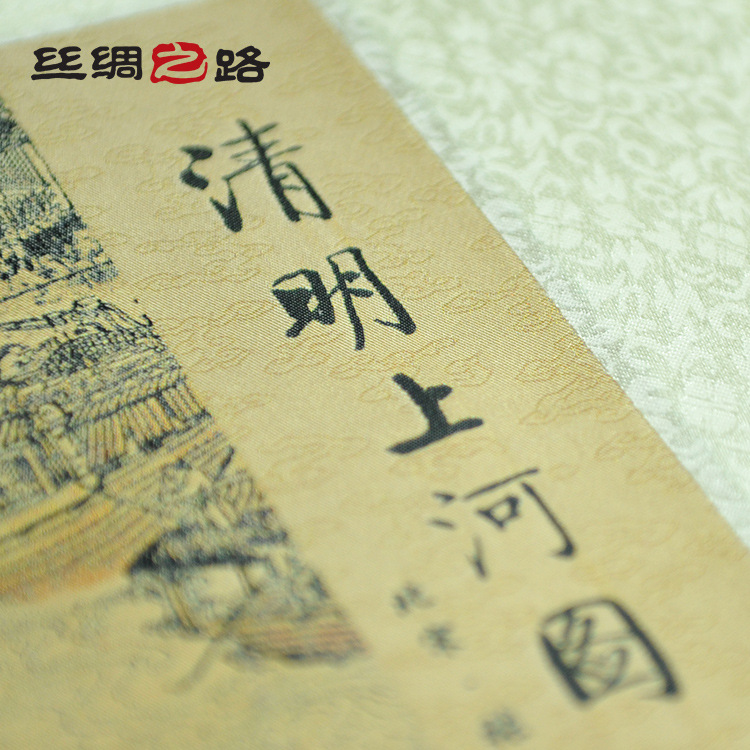 丝绸之路
清明上河图
北宋